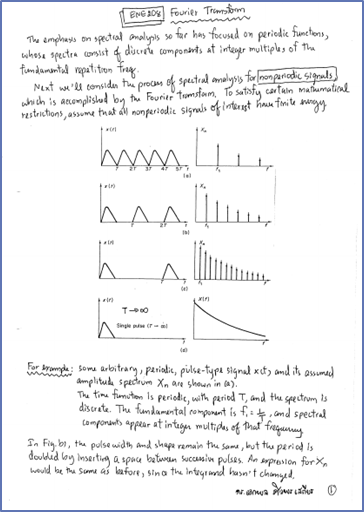 ENE208 Fourier Transform
The emphasis on spectral analysis so far has focused on periodic functions,
whose spectra consist of discrete components at integer multiples of the
fundamental repetition freq.
Next we'll consider the process of spectral analysis for nonperiodic signals,
which is accomplished by the Fourier transform. To satisfy certain mathematical
restrictions, assume that all nonperiodic signals of interest have finite energy.
x(t) Xn
T 2T 3T 4T 5T t f1 f
(a)
x(t) Xn
T 2T t f1 f
(b)
x(t) Xn
T t f1 f
(c)
x(t) X(f)
T→∞
Single pulse (T → ∞)
t f
(d)
For example: some arbitrary, periodic, pulse-type signal x(t) and its assumed
amplitude spectrum Xn are shown in (a).
The time function is periodic, with period T, and the spectrum is
discrete. The fundamental component is f1 = 1/T, and spectral
components appear at integer multiples of that frequency
In Fig. b), the pulse width and shape remain the same, but the period is
doubled by inserting a space between successive pulses. An expression for Xn
would be the same as before, since the integrand hasn't changed.
1